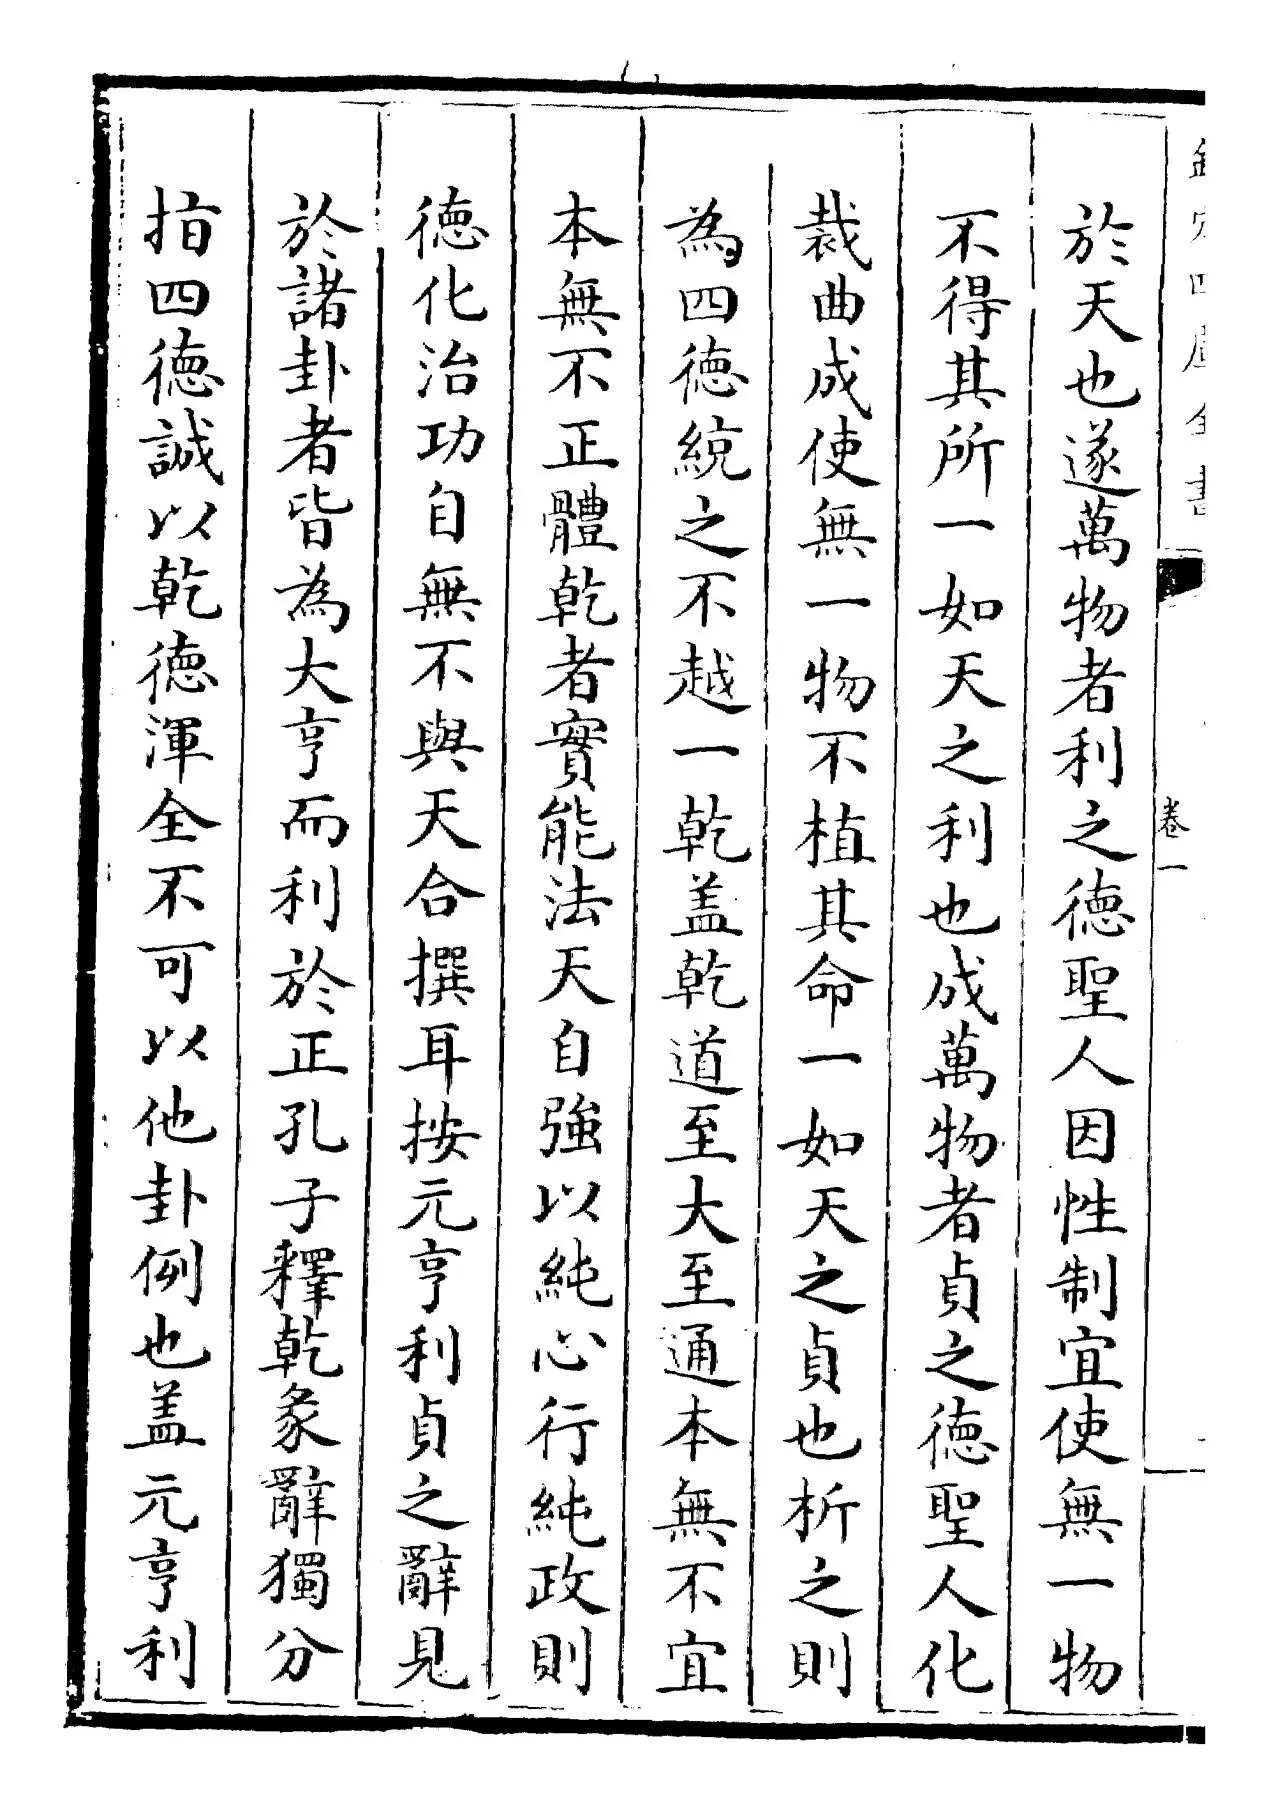 欽定四庫全書
卷一
於天也遂萬物者利之德聖人因性制宜使無一物
不得其所一如天之利也成萬物者貞之德聖人化
裁曲成使無一物不植其命一如天之貞也析之則
為四德統之不越一乾蓋乾道至大至通本無不宜
本無不正體乾者實能法天自強以純心行純政則
德化治功自無不與天合撰耳按元亨利貞之辭見
於諸卦者皆為大亨而利於正孔子釋乾彖辭獨分
指四德誠以乾德渾全不可以他卦例也蓋元亨利